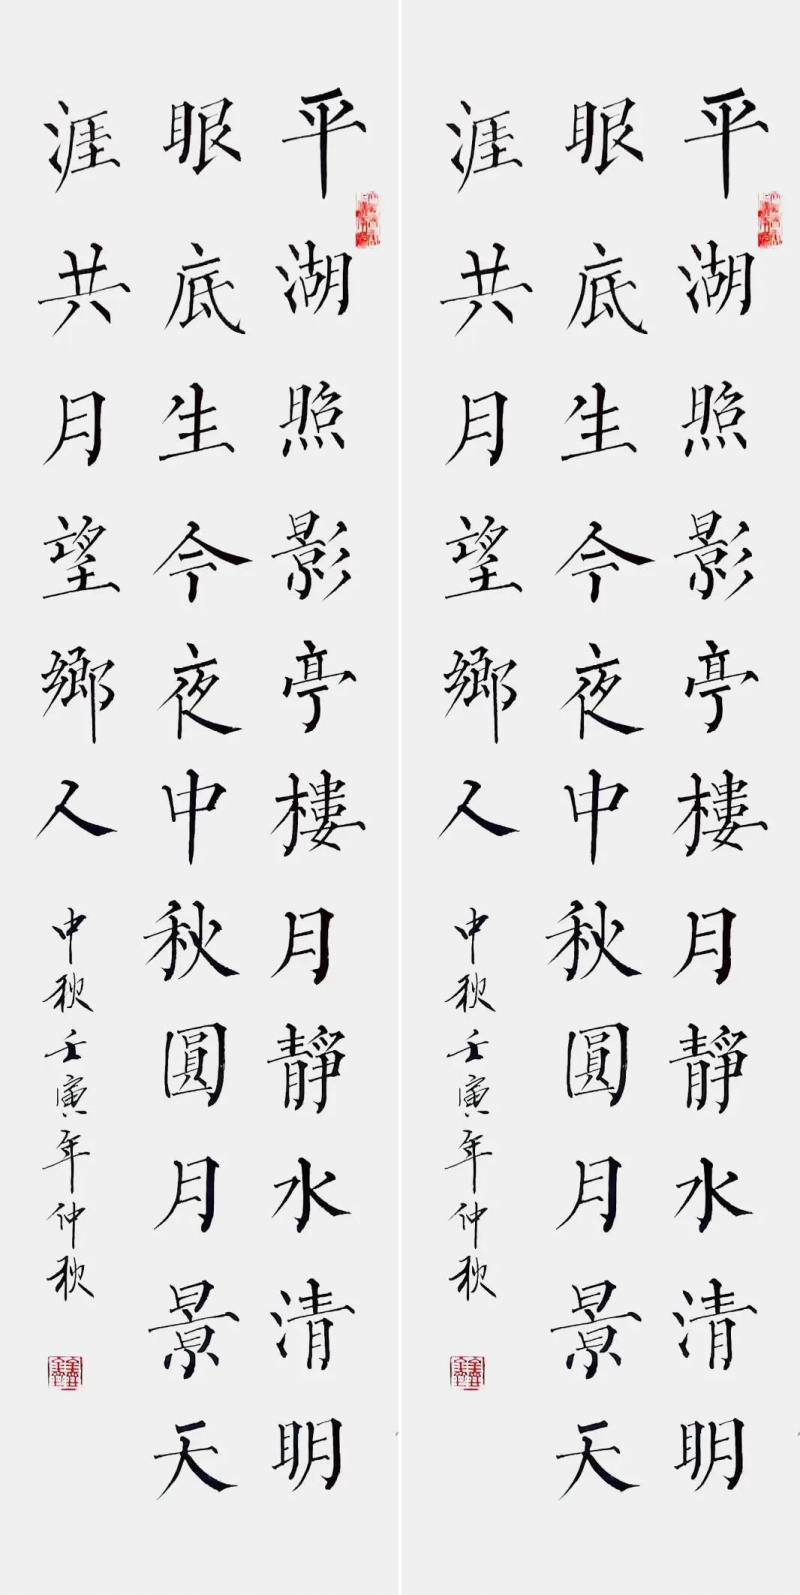 平湖照影亭樓月靜水清明
眼底生今夜中秋圓月景天
涯共月望鄉人
中秋壬寅年仲秋
平湖照影亭樓月靜水清明
眼底生今夜中秋圓月景天
涯共月望鄉人
中秋壬寅年仲秋